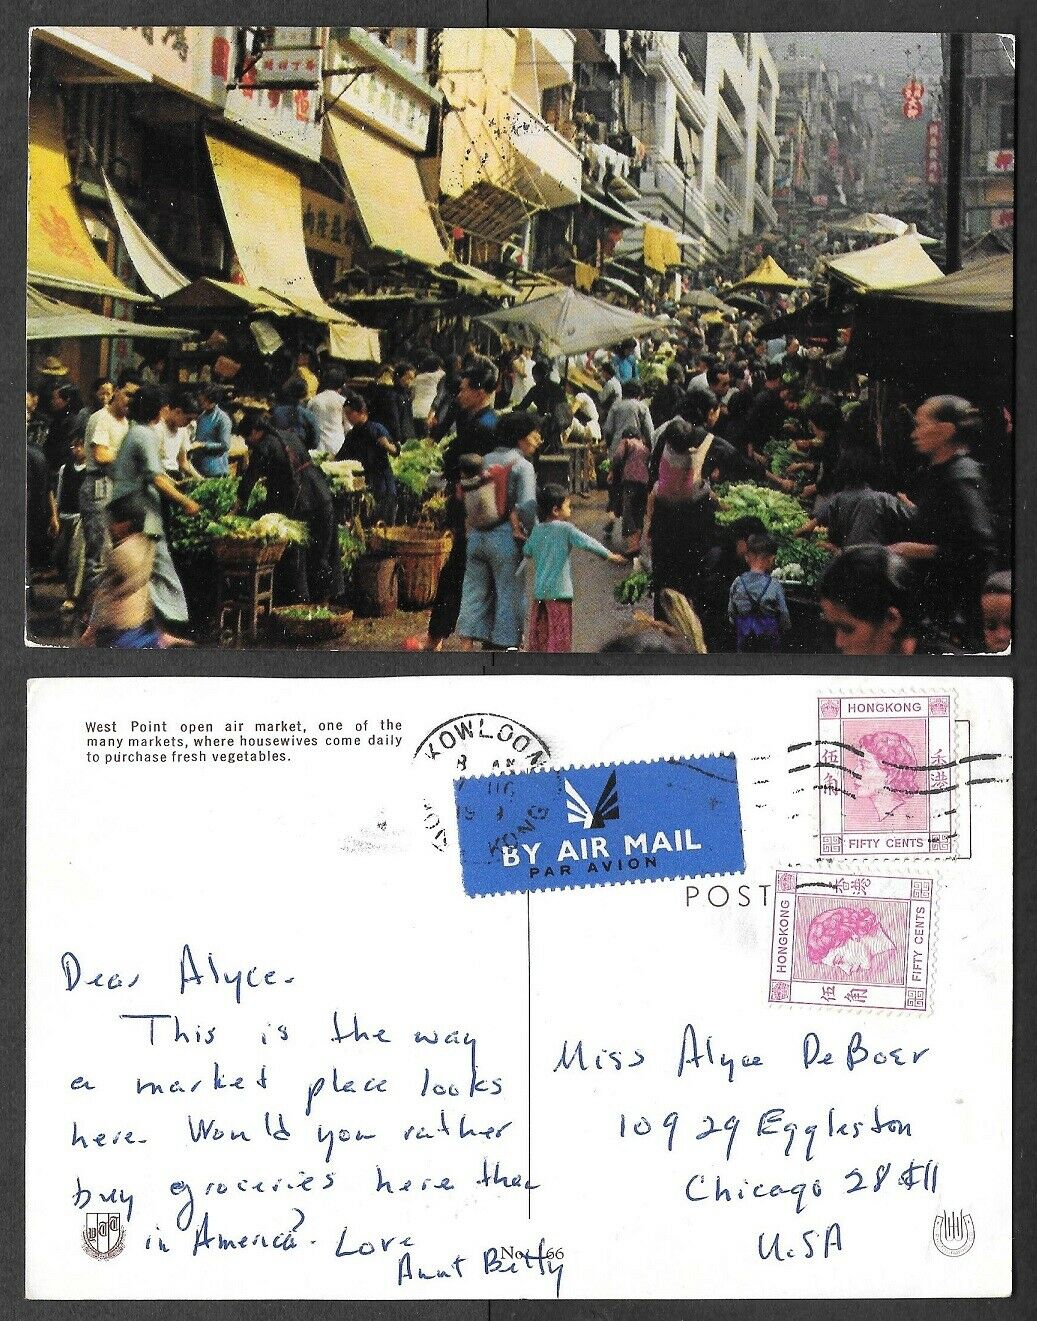 West Point open air market, one of the
many markets, where housewives come daily
to purchase fresh vegetables.
KOWLOON
KONG
BY AIR MAIL
PAR AVION
HONGKONG
伍角
香港
FIFTY CENTS
POST
HONGKONG
香港
伍角
FIFTY CENTS
Dear Alyce.
This is the way
a market place looks
here. Would you rather
buy groceries here than
in America? Love
Aunt Betty
Miss Alyce DeBoer
10929 Eggleston
Chicago 28 Ill
U.SA
No. 66